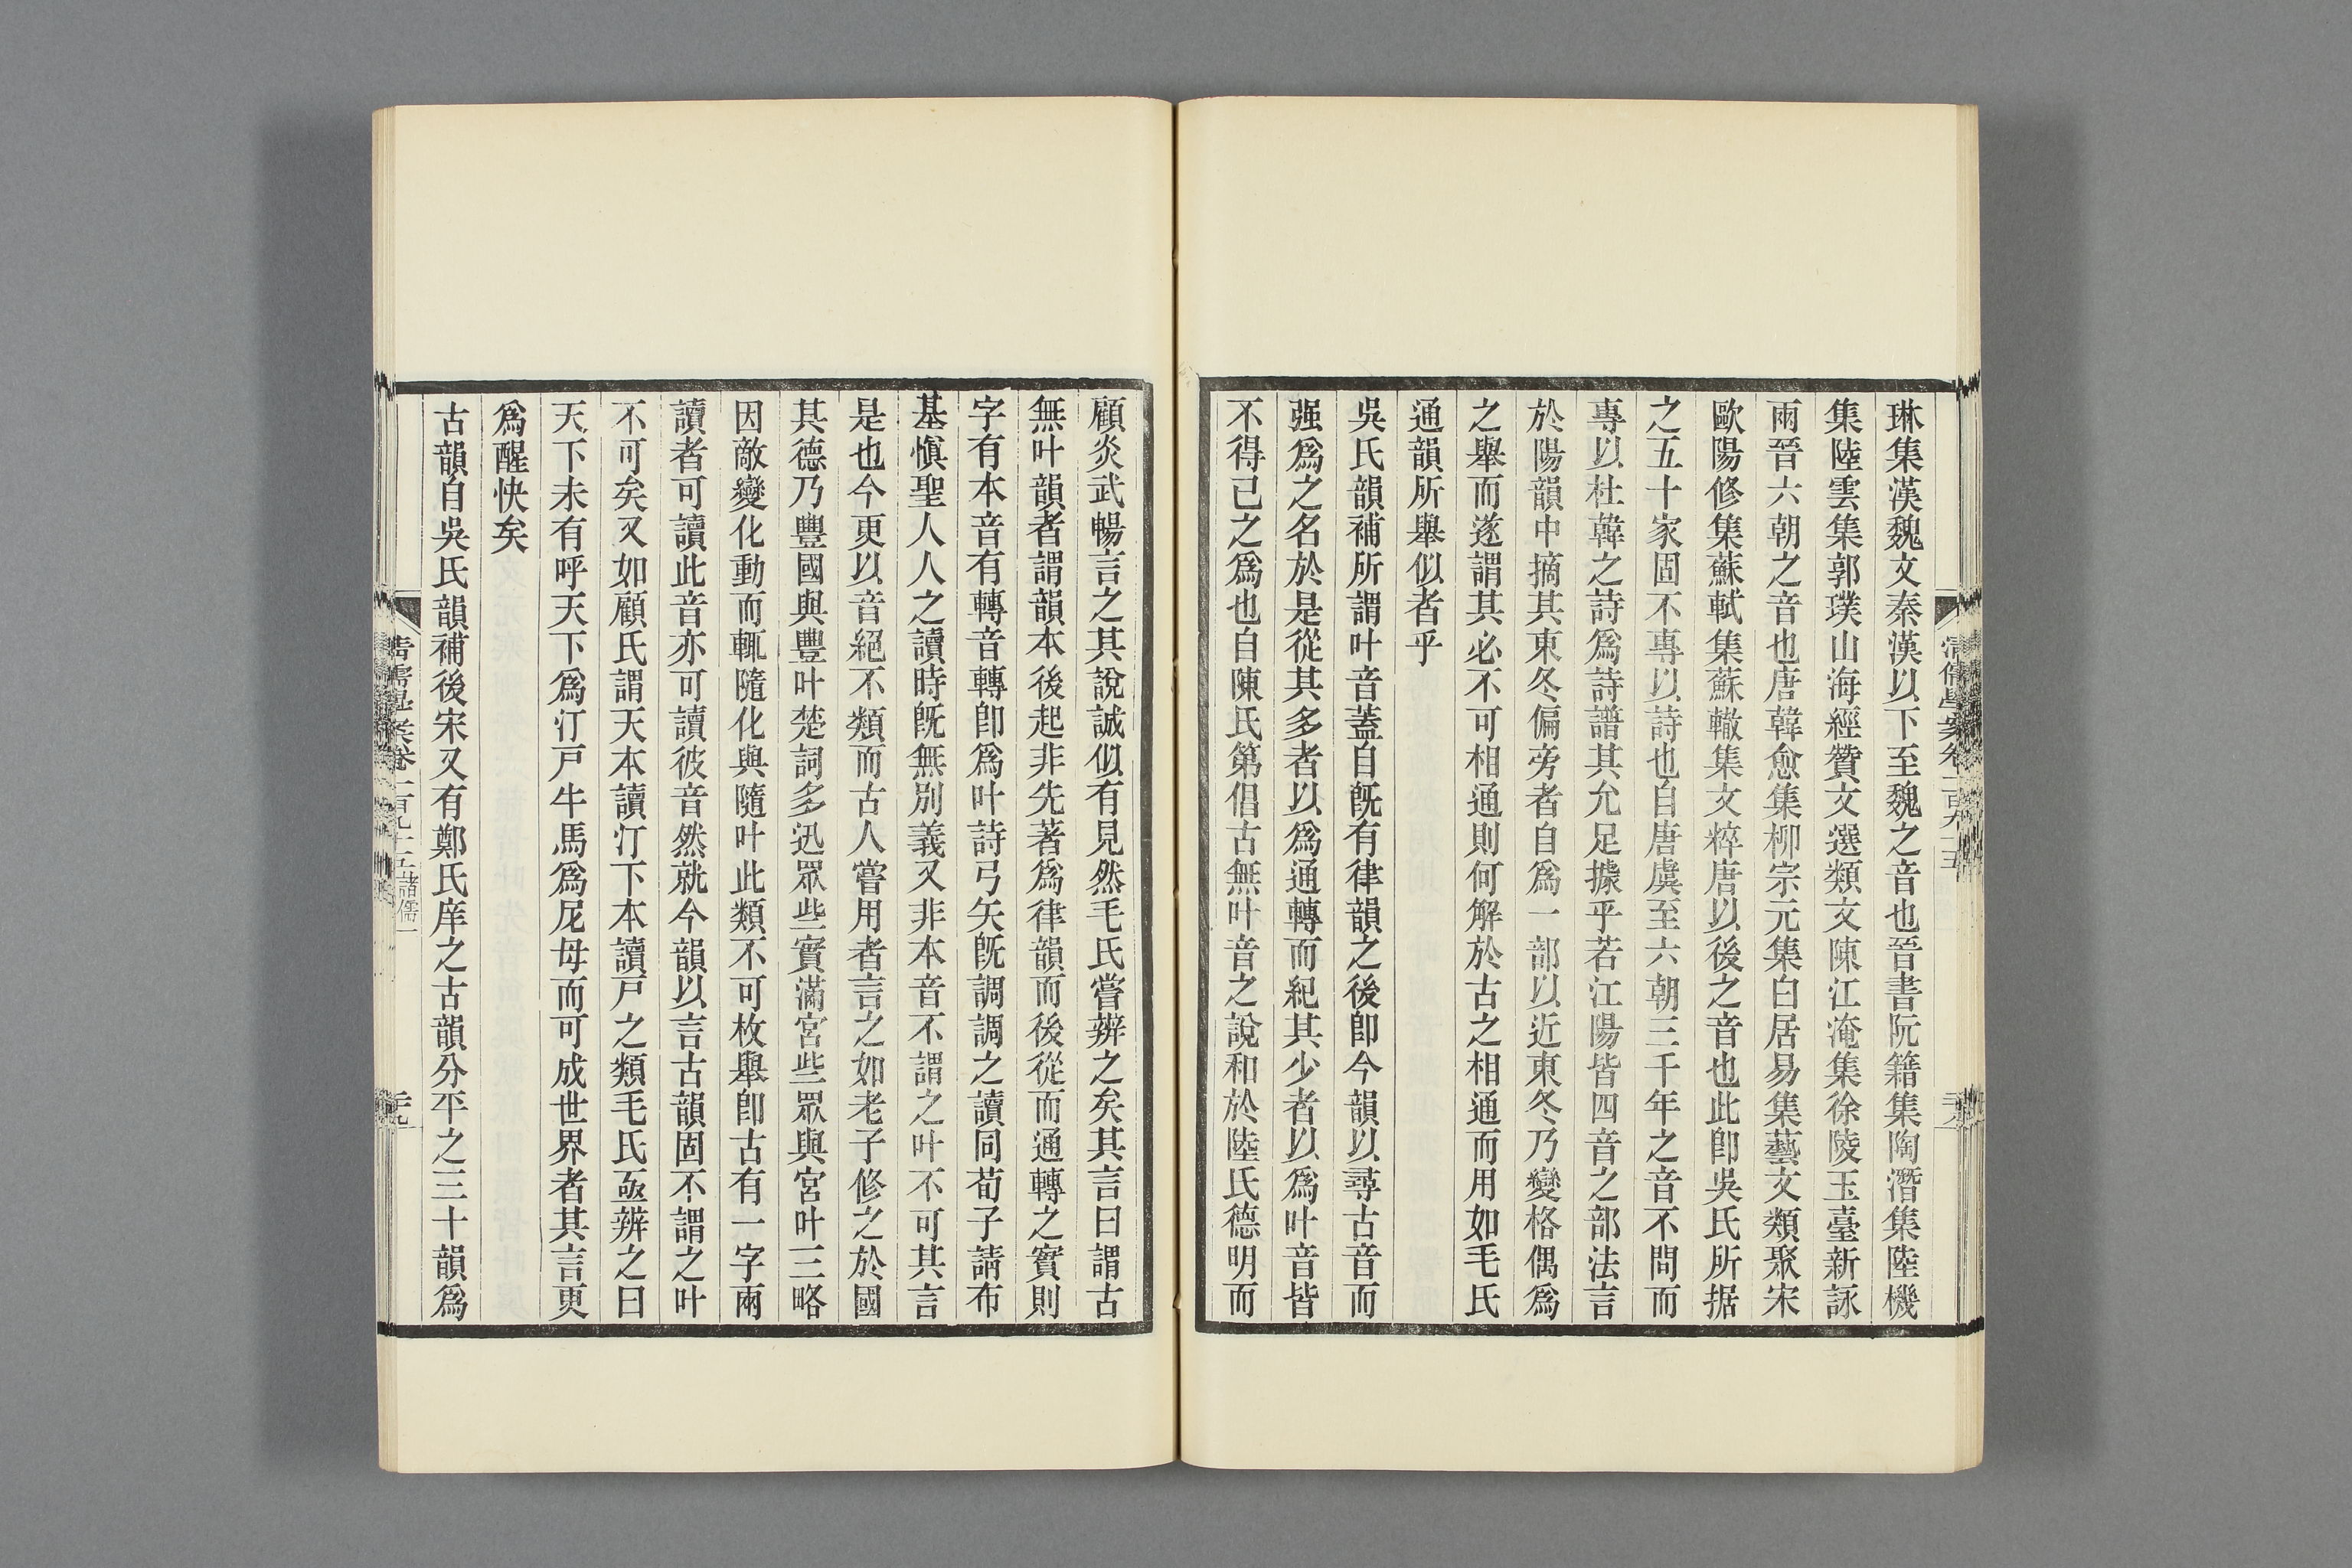 琳集漢魏文秦漢以下至魏之音也晉書阮籍集陶潛集陸機
集陸雲集郭璞山海經贊文選類文陳江淹集徐陵玉臺新詠
兩晉六朝之音也唐韓愈集柳宗元集白居易集藝文類聚宋
歐陽修集蘇軾集蘇轍集文粹唐以後之音也此卽吳氏所据
之五十家固不專以詩也自唐虞至六朝三千年之音不問而
專以杜韓之詩爲詩譜其允足據乎若江陽皆四音之部法言
於陽韻中摘其東冬偏旁者自爲一部以近東冬乃變格偶爲
之舉而遂謂其必不可相通則何解於古之相通而用如毛氏
通韻所舉似者乎
吳氏韻補所謂叶音蓋自旣有律韻之後卽今韻以尋古音而
强爲之名於是從其多者以爲通轉而紀其少者以爲叶音皆
不得已之爲也自陳氏第倡古無叶音之說和於陸氏德明而
顧炎武暢言之其說誠似有見然毛氏嘗辨之矣其言曰謂古
無叶韻者謂韻本後起非先著爲律韻而後從而通轉之實則
字有本音有轉音轉卽爲叶詩弓矢旣調調之讀同荀子請布
基愼聖人人之讀時旣無別義又非本音不謂之叶不可其言
是也今更以音絕不類而古人嘗用者言之如老子修之於國
其德乃豐國與豐叶楚詞多迅眾些實滿宮些眾與宮叶三略
因敵變化動而輒隨化與隨叶此類不可枚舉卽古有一字兩
讀者可讀此音亦可讀彼音然就今韻以言古韻固不謂之叶
不可矣又如顧氏謂天本讀汀下本讀戸之類毛氏亟辨之曰
天下未有呼天下爲汀戸牛馬爲尼母而可成世界者其言更
爲醒快矣
古韻自吳氏韻補後宋又有鄭氏庠之古韻分平之三十韻爲
清儒學案卷一百九十五 諸儒一